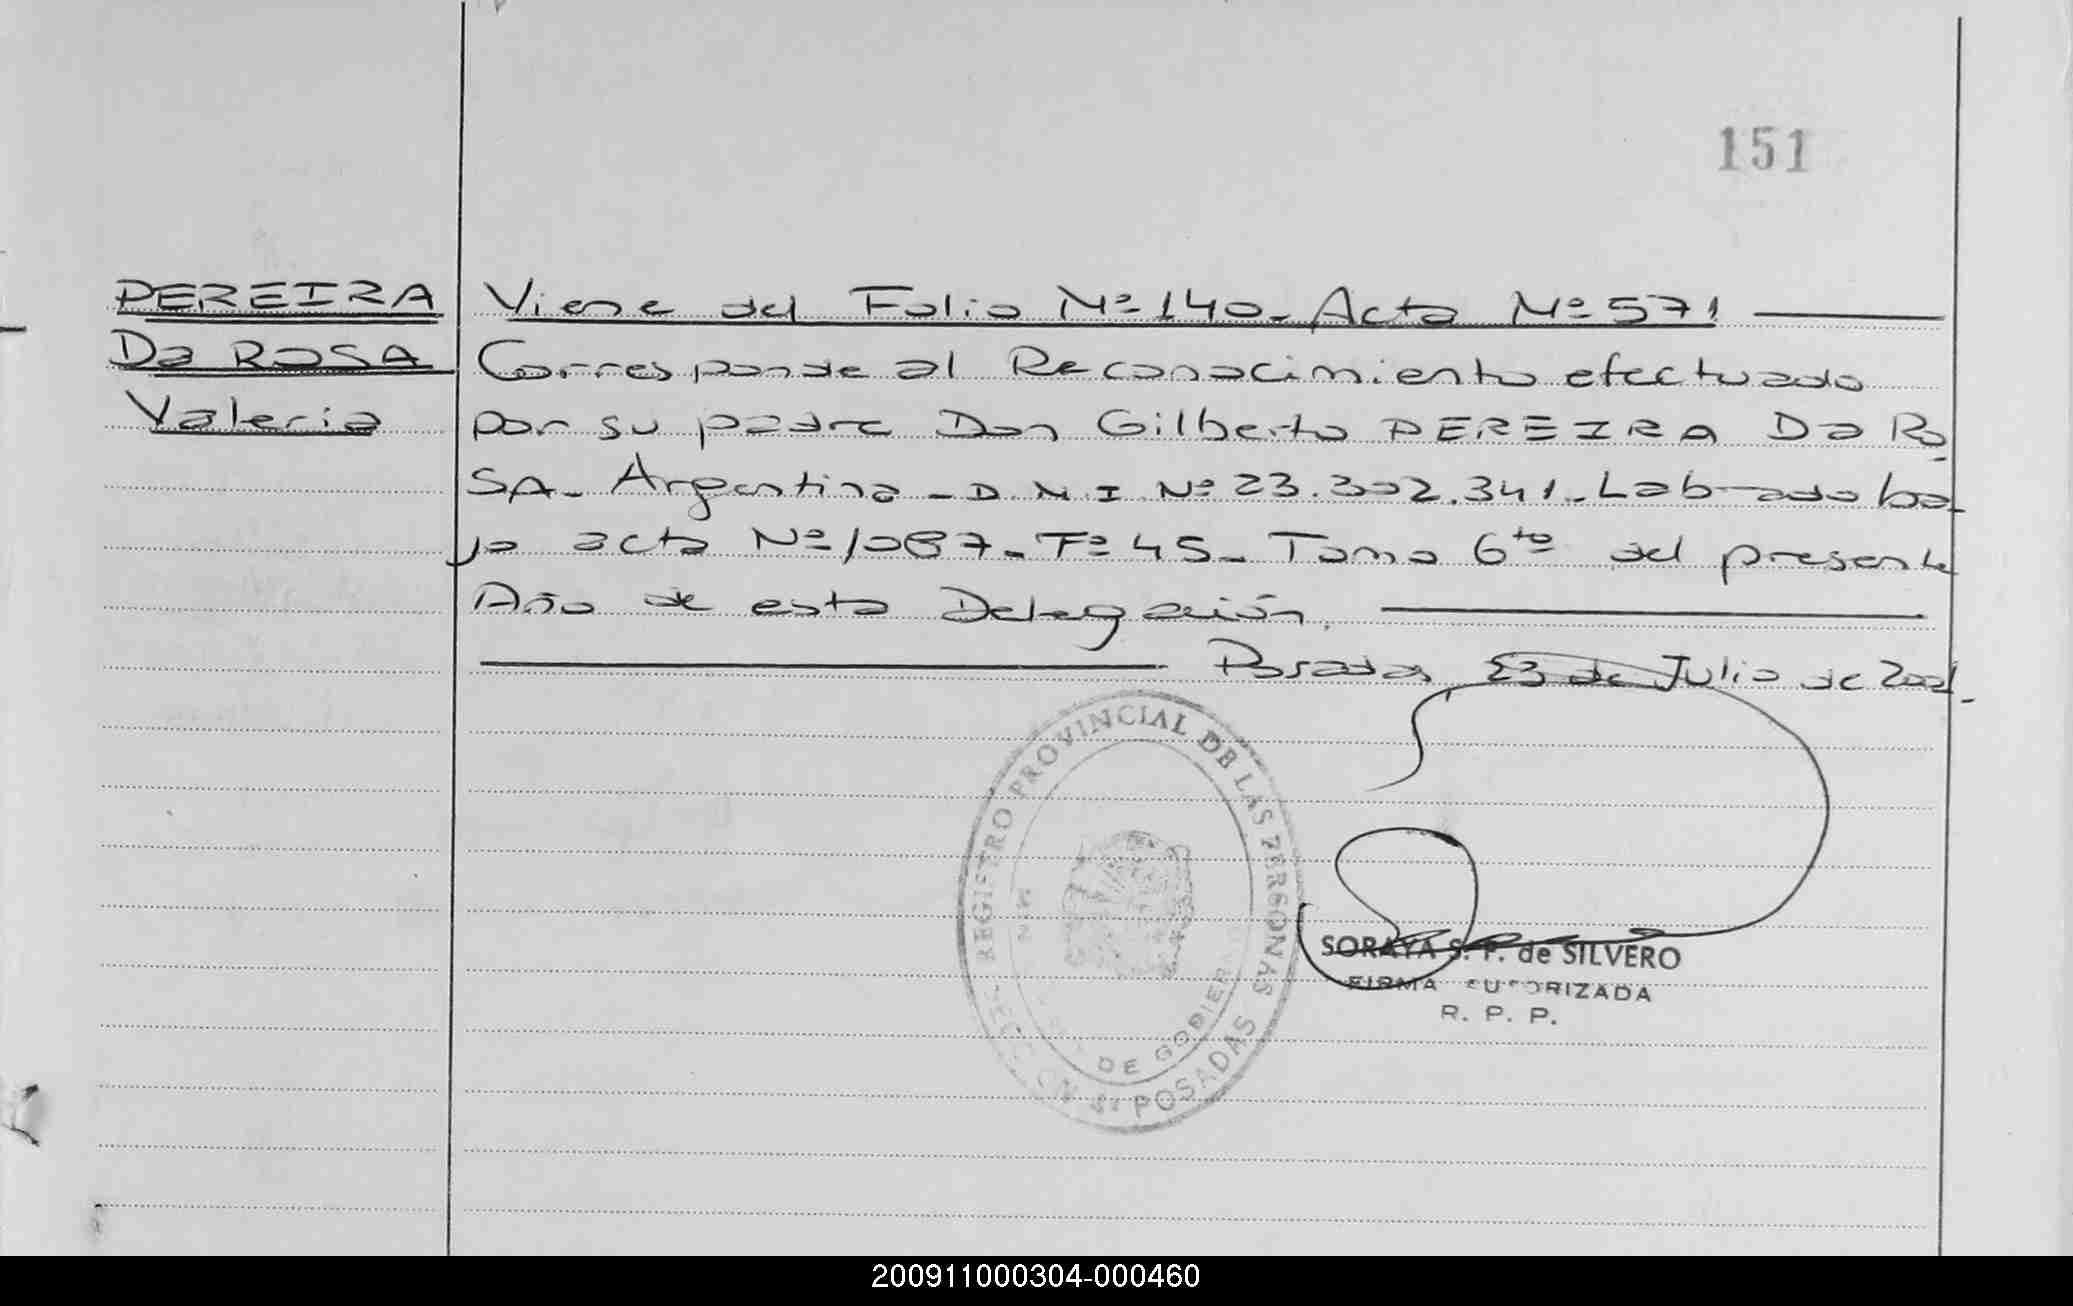 151
PEREIRA
Da ROSA
Valeria
Viene del Folio Nº 140- Acta Nº 571
Corresponde al Reconocimiento efectuado
por su padre Don Gilberto PEREIRA Da Ro
SA- Argentino - D N I Nº 23.302.341- Labrado ba-
jo acta Nº 1087- Fº 45- Tomo 6to del presente
Año de esta Delegación.
Posadas, 23 de Julio de
REGISTRO PROVINCIAL DE LAS PERSONAS
DE GOBIER
POSADAS
SORAYA S. P. de SILVERO
FIRMA AUTORIZADA
R. P. P.
200911000304-000460